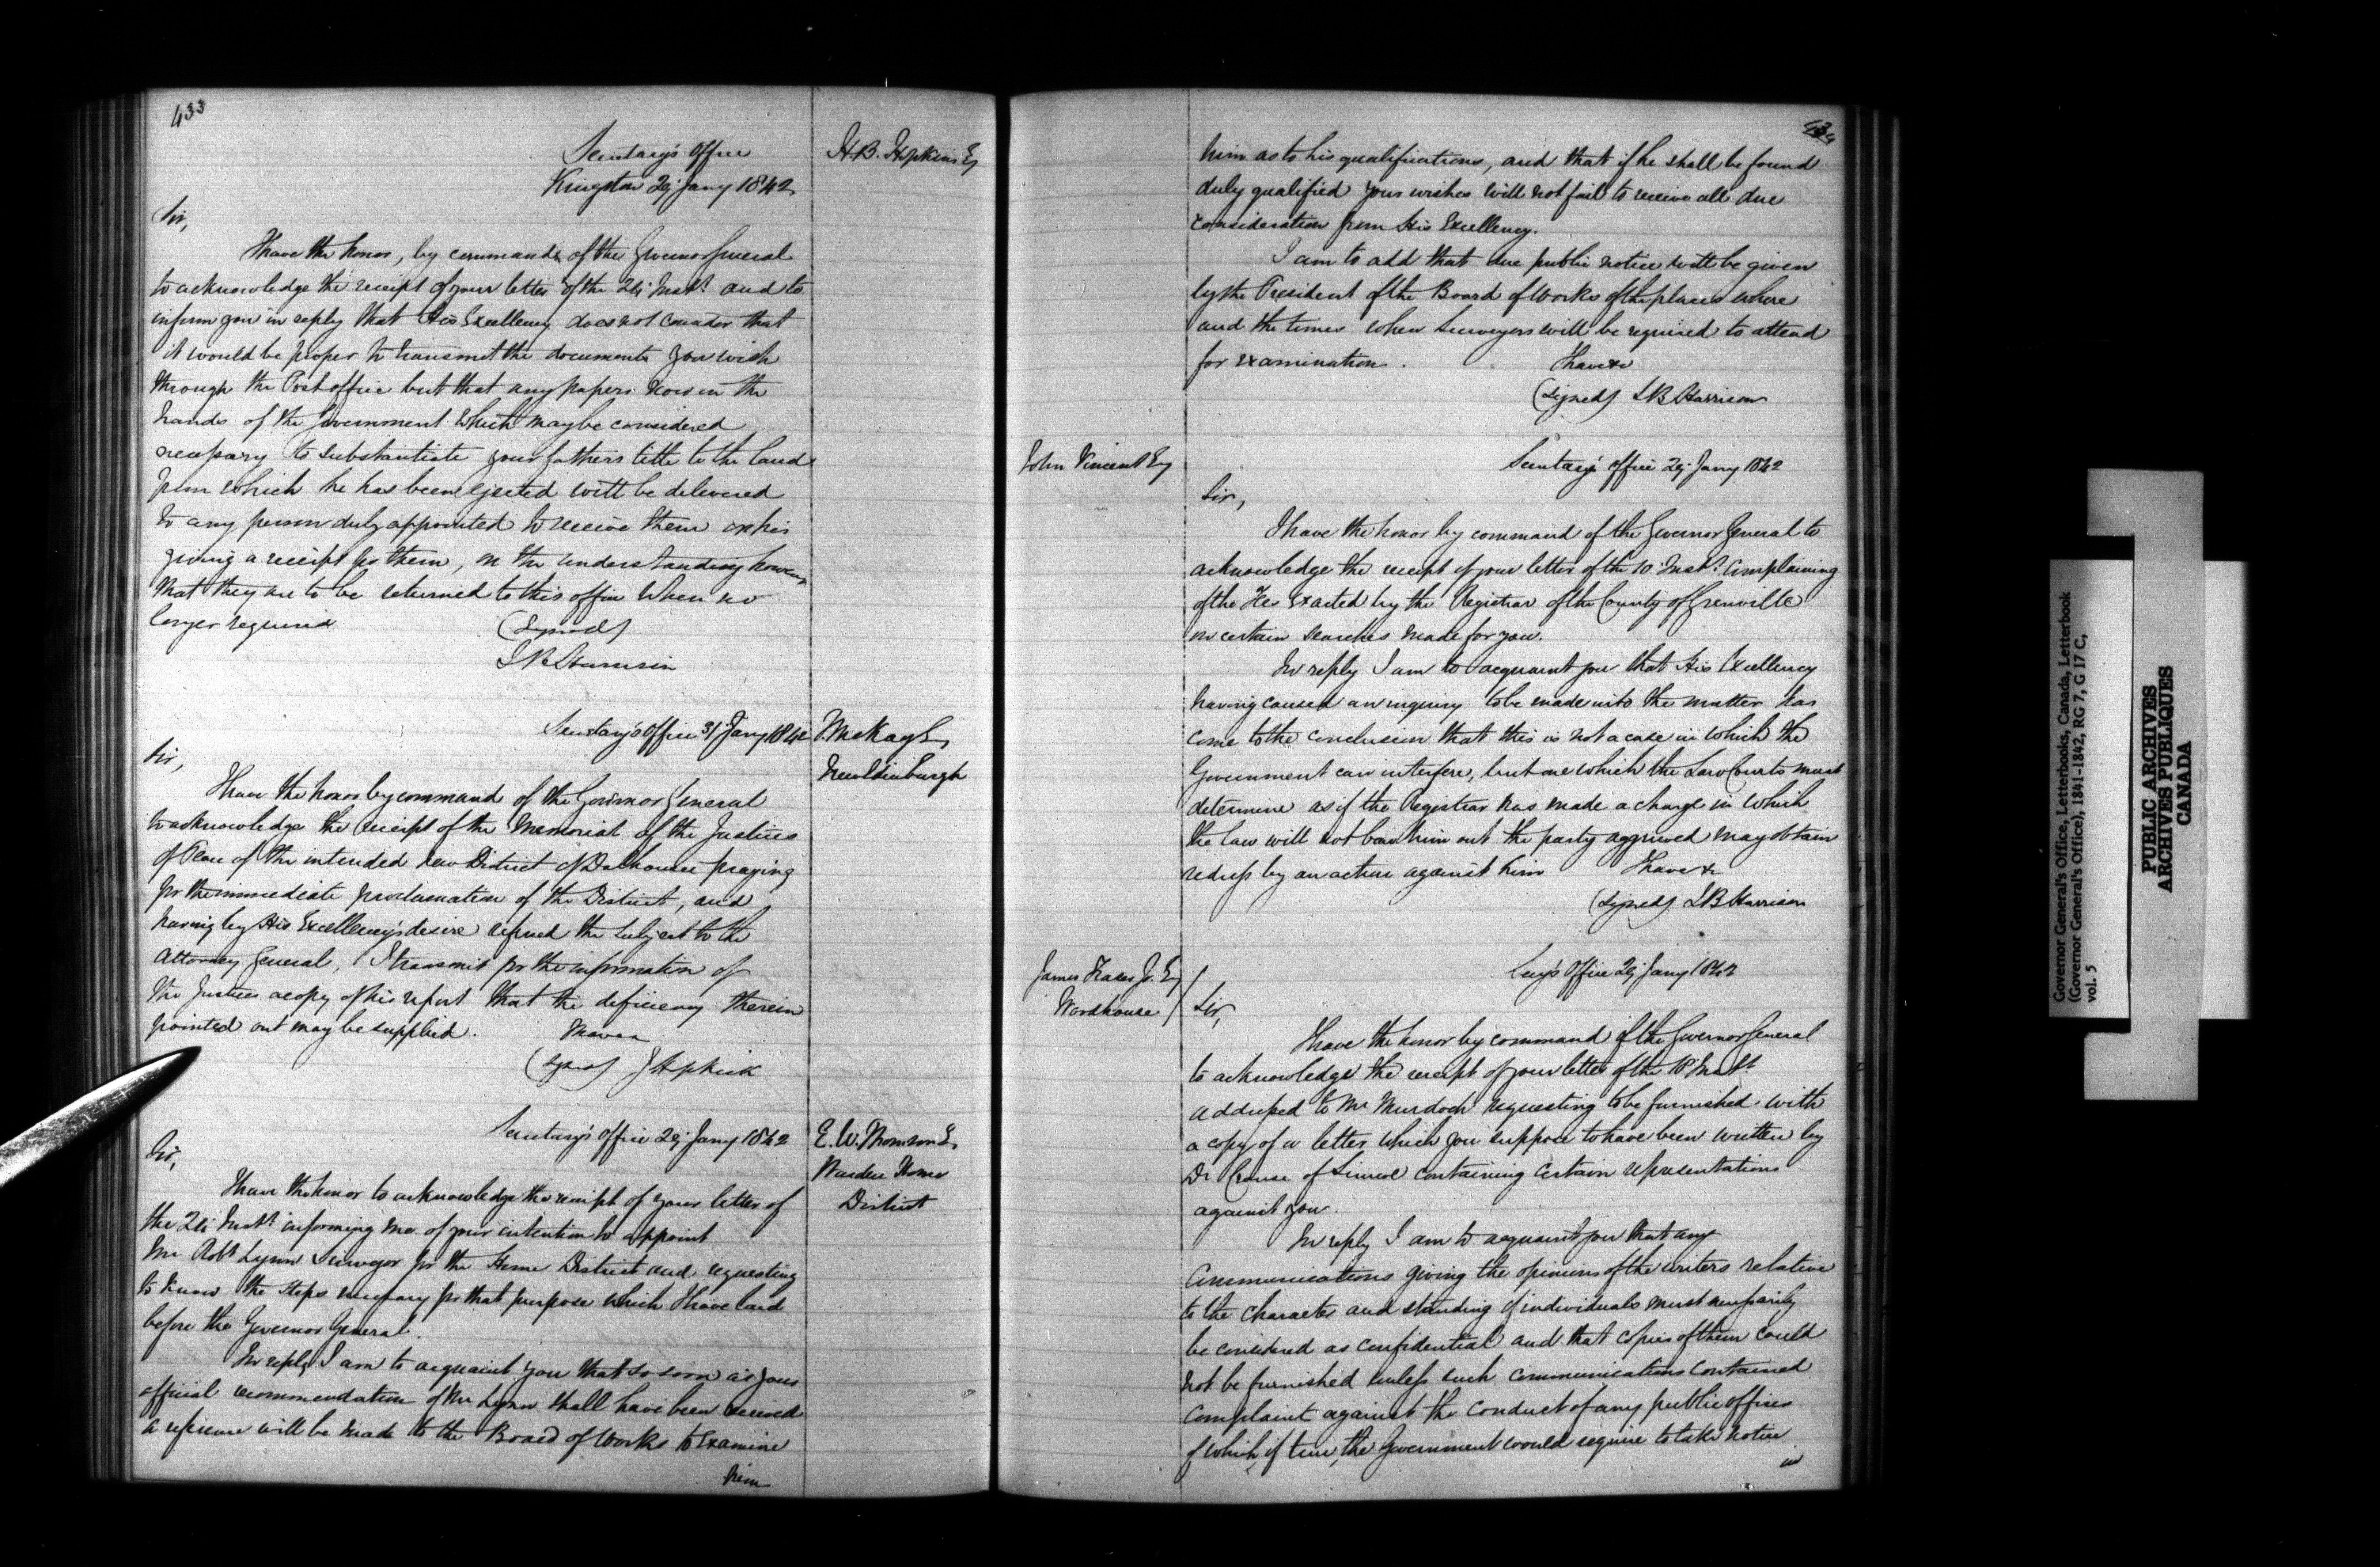 433
H.B. Hopkins Esq
Secretary's Office
Kingston 29 Jany 1842
Sir,
I have the honor, by command of the Governor General
to acknowledge the receipt of your letter of the 24 Inst. and to
inform you in reply that His Excellency does not consider that
it would be proper to transmit the documents you wish
through the Post office but that any papers now in the
hands of the Government which may be considered
necessary to substantiate your fathers title to the land
from which he has been ejected will be delivered
to any person duly appointed to receive them on his
giving a receipt for them, on the understanding however
that they are to be returned to this office when no
longer required
(Signed)
S B Harrison
T. McKay Esq
New Edinburgh
Secretary's Office 31 Jany 1842
Sir,
I have the honor by command of the Governor General
to acknowledge the receipt of the Memorial of the Justices
of Peace of the intended new District of Dalhousie praying
for the immediate proclamation of the District, and
having by His Excellency's desire referred the subject to the
Attorney General, I transmit for the information of
the Justices a copy of his report that the deficiency therein
pointed out may be supplied.
I have &
(Signed) J Hopkirk
E. W. Thomson Esq
Warden Home
District
Secretary's Office 29 Jany 1842
Sir,
I have the honor to acknowledge the receipt of your letter of
the 24 Inst. informing me of your intention to appoint
Mr Robt Lynn Surveyor for the Home District and requesting
to know the steps necessary for that purpose which I have laid
before the Governor General.
In reply I am to acquaint you that so soon as your
official recommendation of Mr Lynn shall have been received
a reference will be made to the Board of Works to examine
him
434
him as to his qualifications, and that if he shall be found
duly qualified your wishes will not fail to receive all due
consideration from His Excellency.
I am to add that due public notice will be given
by the President of the Board of Works of the places where
and the times when Surveyors will be required to attend
for examination.
I have &
(Signed) S B Harrison
John Vincent Esq
Secretary's Office 29 Jany 1842
Sir,
I have the honor by command of the Governor General to
acknowledge the receipt of your letter of the 10 Inst. complaining
of the Fees exacted by the Registrar of the County of Grenville
on certain searches made for you.
In reply I am to acquaint you that His Excellency
having caused an inquiry to be made into the matter has
come to the conclusion that this is not a case in which the
Government can interfere, but one which the Law Courts must
determine as if the Registrar has made a charge in which
the law will not bear him out the party aggrieved may obtain
redress by an action against him
I have &
(Signed) S B Harrison
James Jr. Esq
Woodhouse
Secy's Office 29 Jany 1842
Sir,
I have the honor by command of the Governor General
to acknowledge the receipt of your letter of the 18 Inst.
addressed to Mr Murdoch requesting to be furnished with
a copy of a letter which you suppose to have been written by
Dr Crouse of Simcoe containing certain representations
against you.
In reply I am to acquaint you that any
communications giving the opinions of the writers relative
to the character and standing of individuals must necessarily
be considered as confidential and that copies of them could
not be furnished unless such communications contained
complaint against the conduct of any public officer
of which, if true, the Government would require to take notice
in
Governor General's Office, Letterbooks, Canada, Letterbook
(Governor General's Office), 1841-1842, RG 7, G 17 C,
vol. 5
PUBLIC ARCHIVES
ARCHIVES PUBLIQUES
CANADA